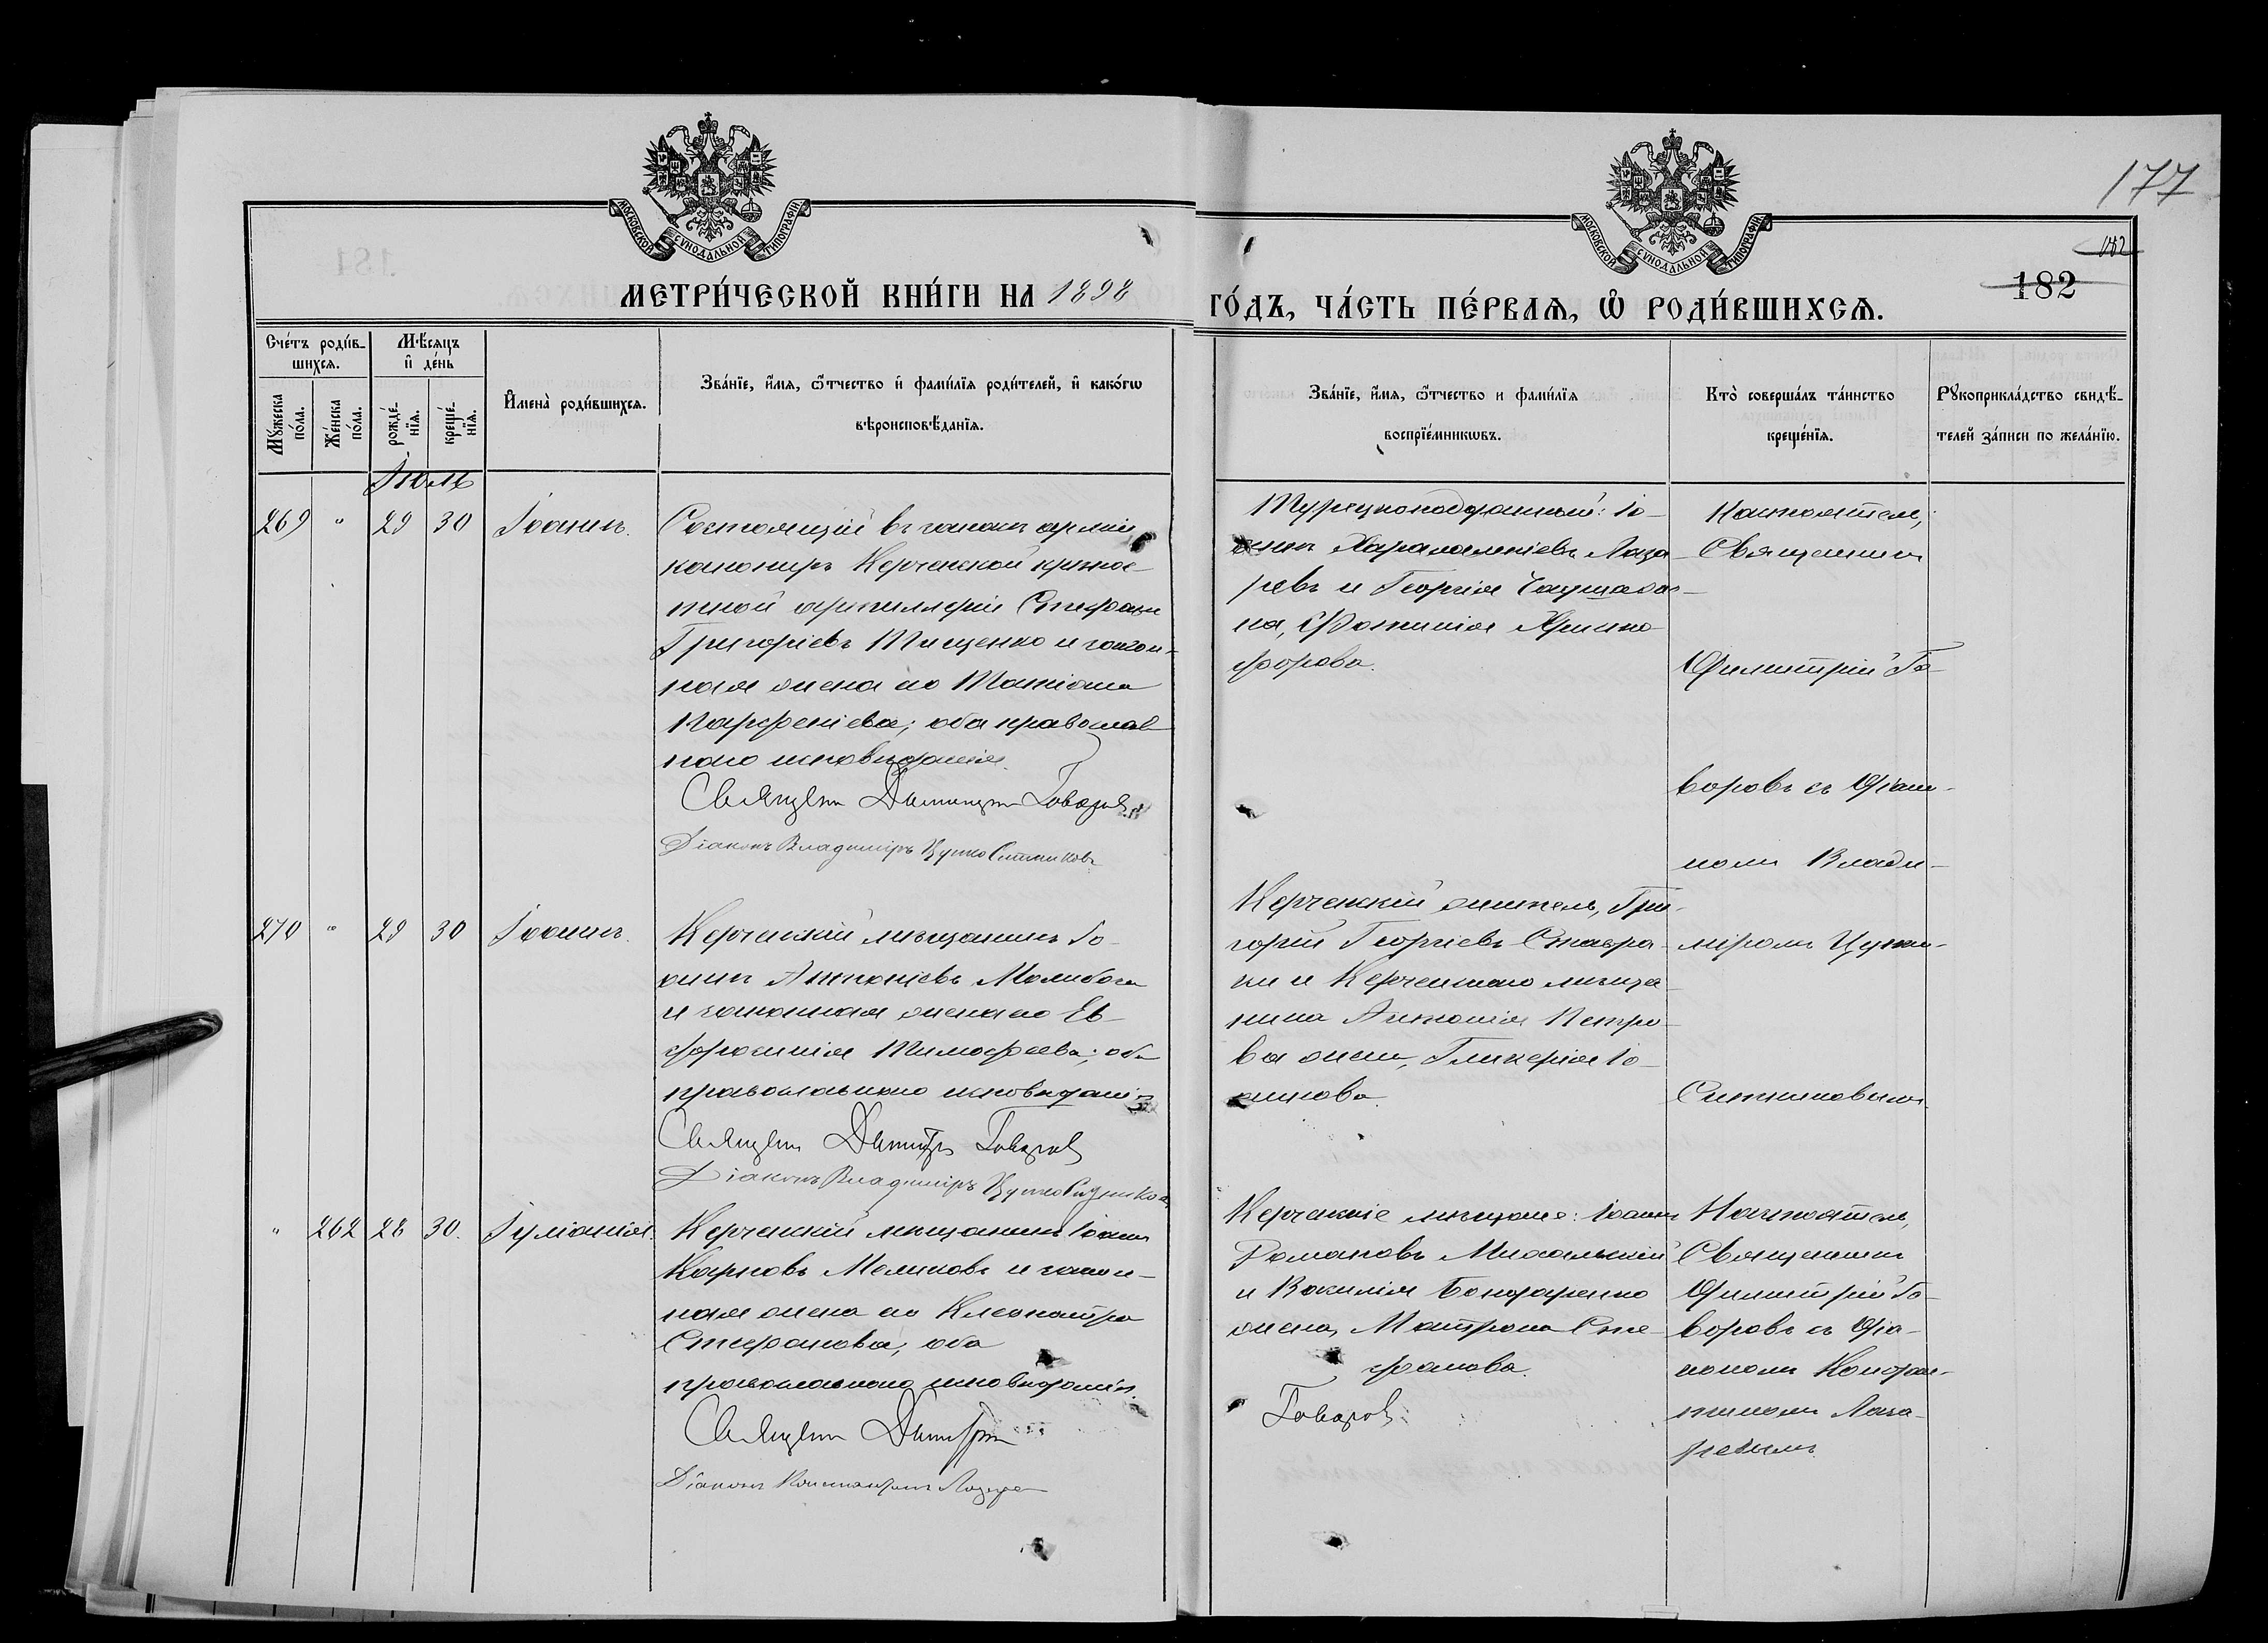 177
182
182
МОСКОВСКОЙ СУНОДАЛЬНОЙ ТИПОГРАФІИ
МОСКОВСКОЙ СУНОДАЛЬНОЙ ТИПОГРАФІИ
МЕТРИ́ЧЕСКОЙ КНИ́ГИ НА 1898
ГО́ДЪ, ЧА́СТЬ ПЕ́РВАѦ, Ѽ РОДИ́ВШИХСѦ.
Сче́тъ роди́в-
шихсѧ.
Мꙋ́жеска по́ла.
Же́нска по́ла.
Мѣ́сѧцъ
и҆ де́нь
рожде́-нїѧ.
креще́-нїѧ.
И҆мена̀ роди́вшихсѧ.
Зва́нїе, и҆́мѧ, ѻ҆́тчество и҆ фами́лїѧ роди́телей, и҆ како́гѡ
вѣроисповѣ́данїѧ.
Зва́нїе, и҆́мѧ, ѻ҆́тчество и фами́лїѧ
воспрїе́мникѡвъ.
Кто̀ соверша́лъ та́инство
креще́нїѧ.
Рꙋкоприкла́дство свидѣ́-
телей за́писи по жела́нїю.
Іюль
269 " 29 30 Іоаннъ.
Состоящій въ запасѣ арміи
канониръ Керченской крѣпос-
тной артиллеріи Стефанъ
Григоріевъ Тищенко и закон-
ная жена его Татіана
Парфеніева; оба православ
наго исповѣданія.
Священ Димитрій Говоровъ
Діаконъ Владиміръ Цупко Ситниковъ
Турецкоподданный: Іо-
аннъ Харалампіевъ Лаза-
ревъ и Георгія
на, Фотинія Христо-
форова.
Настоятель,
Священникъ
Димитрій Го-
воровъ съ Діако-
номъ Влади-
міромъ Цупко-
Ситниковымъ.
270 " 29 30 Іоаннъ.
Керченскій мѣщанинъ Іо-
аннъ Антоніевъ Молибога
и законная жена его Ев-
фросинія Тимофеева; оба
православнаго исповѣданія
Священ Димитр Говоровъ
Діаконъ Владиміръ Цупко Ситников
Керченскій житель, Гри-
горій Георгіевъ Ставра-
ки и Керченскаго мѣща-
нина Антонія Петро-
ва жена, Гликерія Іо-
аннова.
" 262 28 30. Іуліанія.
Керченскій мѣщанинъ Іоаннъ
Карповъ Мелиховъ и закон-
ная жена его Клеопатра
Стефанова; оба
православнаго исповѣданія.
Священ Димитрій
Говоровъ
Діаконъ Константинъ Лазаре
Керченскіе мѣщане: Іоаннъ
Романовъ Михальскій
и Василія Бондаренко
жена, Матрона Сте-
фанова.
Настоятель,
Священникъ
Димитрій Го-
воровъ съ Діа-
кономъ Констан-
тиномъ Лаза-
ревымъ.